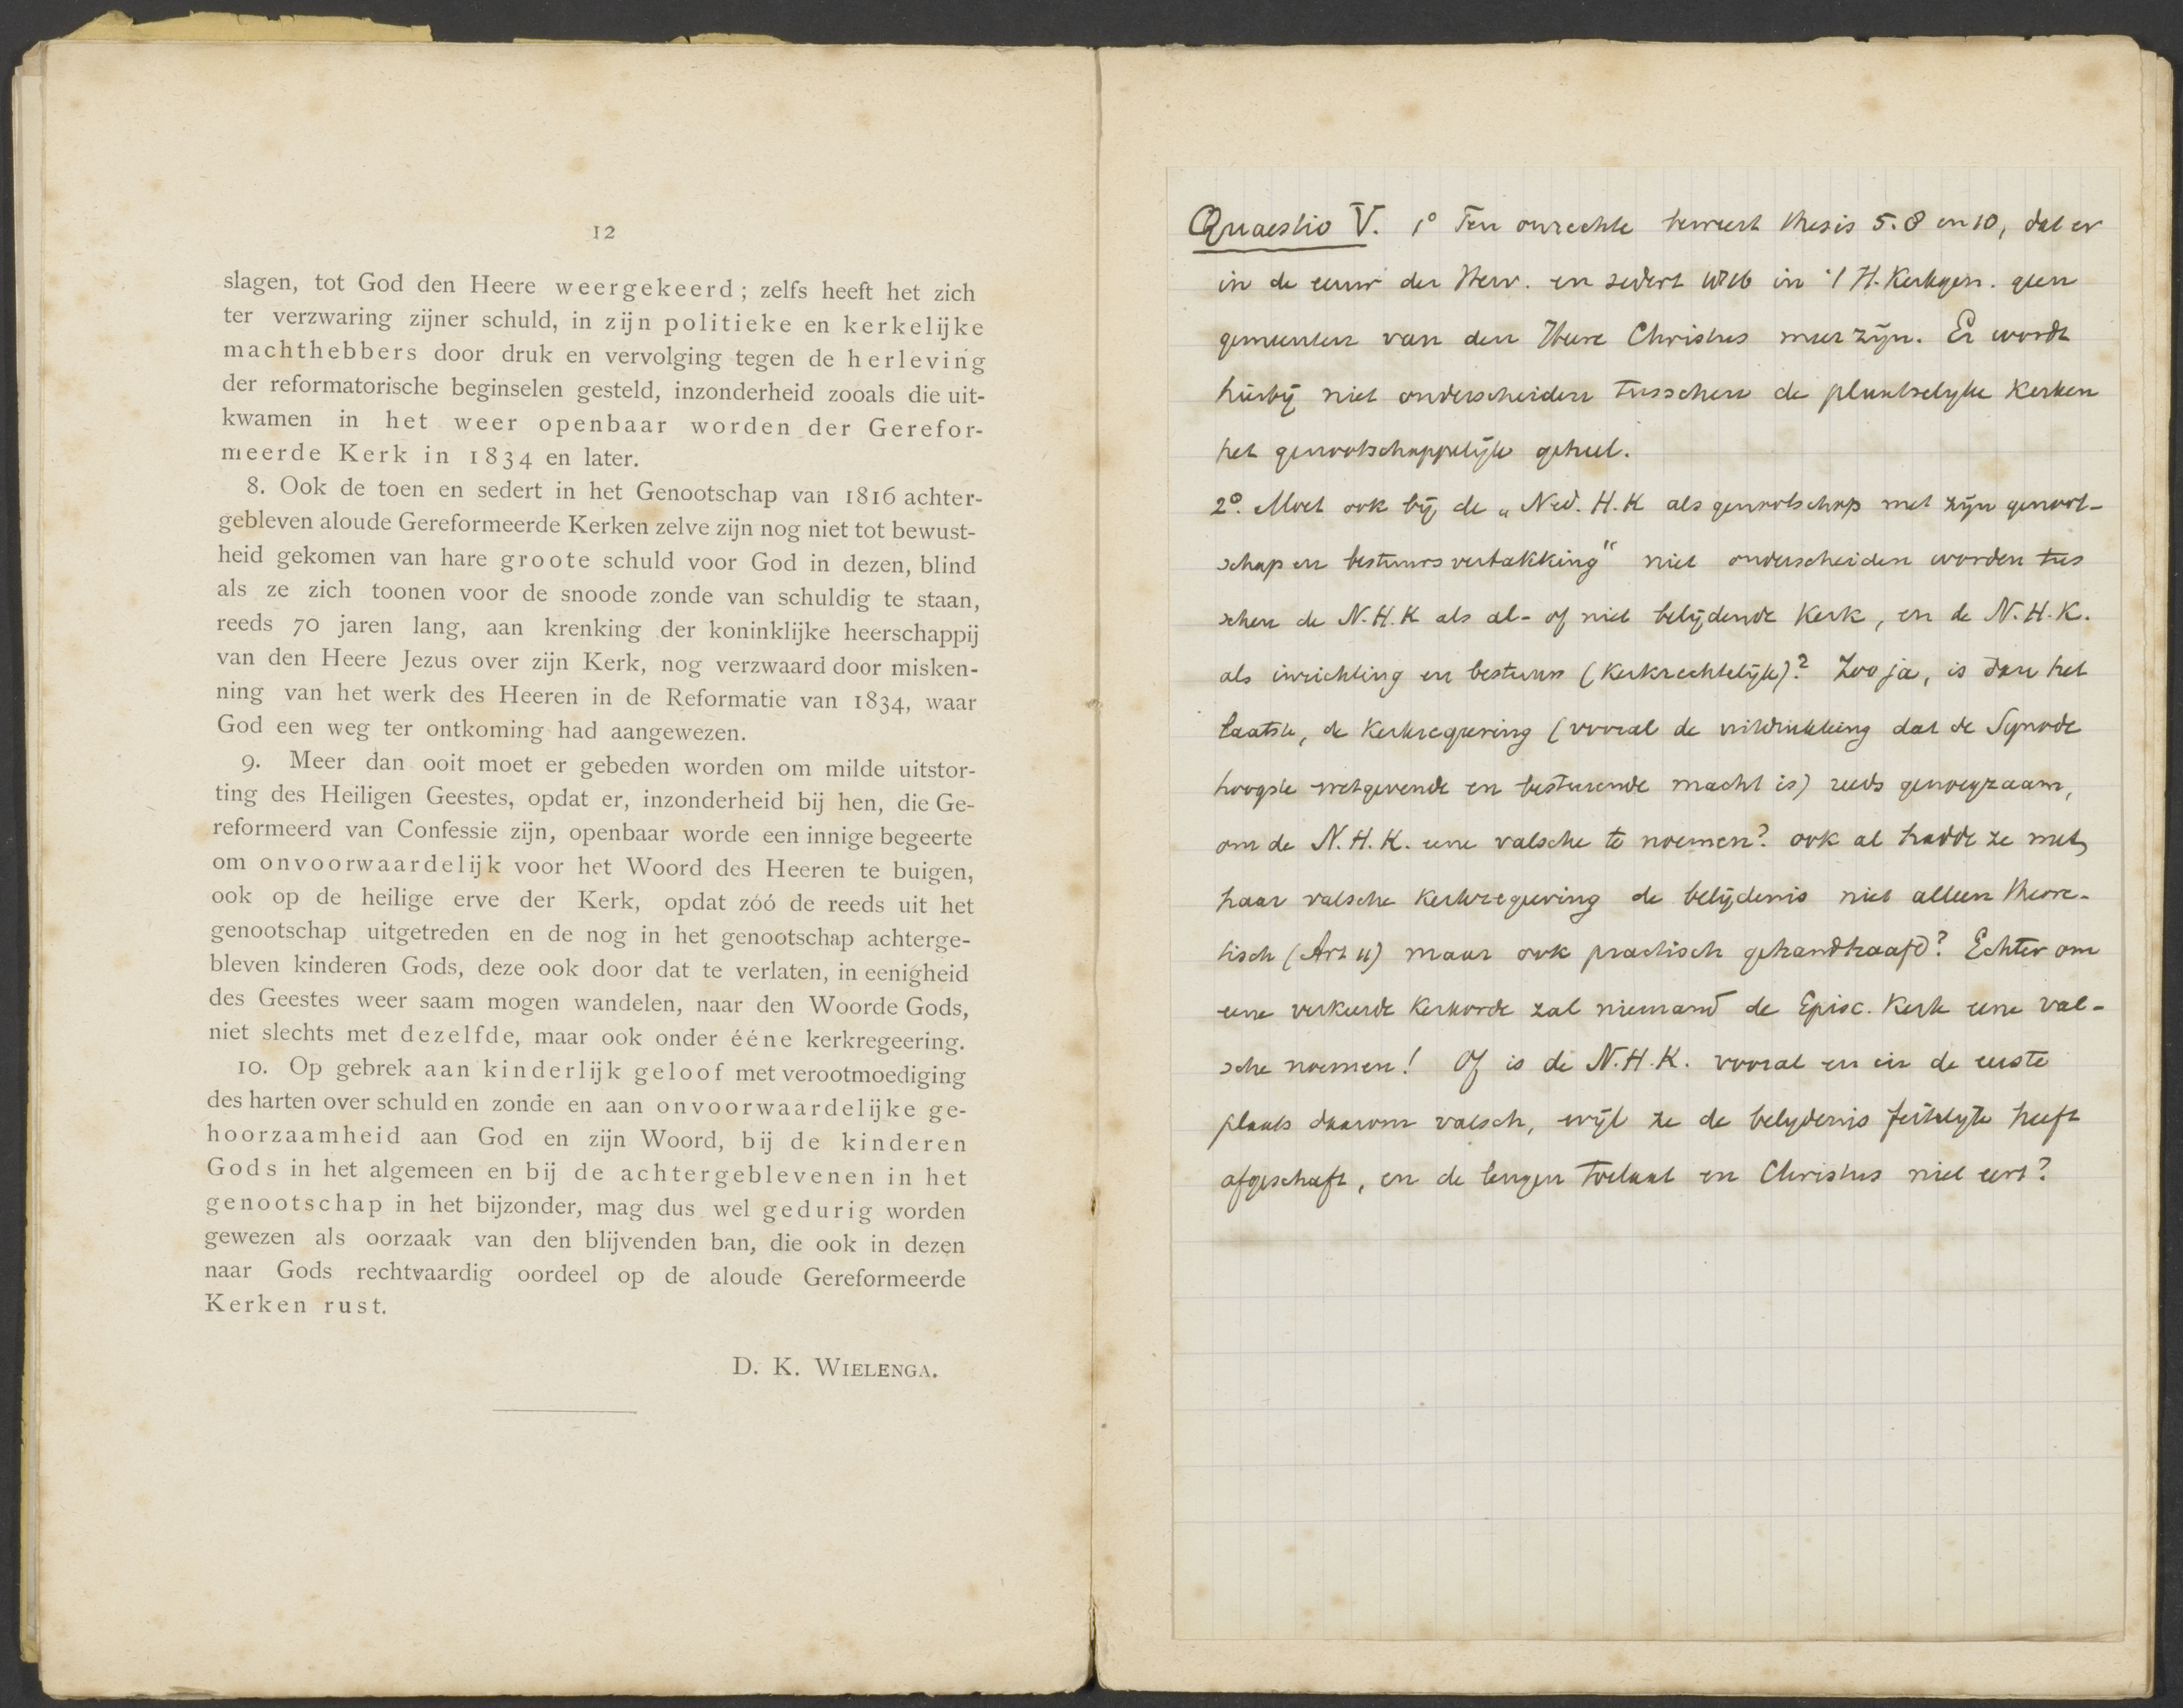 12
slagen, tot God den Heere weergekeerd; zelfs heeft het zich
ter verzwaring zijner schuld, in zijn politieke en kerkelijke
machthebbers door druk en vervolging tegen de herleving
der reformatorische beginselen gesteld, inzonderheid zooals die uit-
kwamen in het weer openbaar worden der Gerefor-
meerde Kerk in 1834 en later.
8. Ook de toen en sedert in het Genootschap van 1816 achter-
gebleven aloude Gereformeerde Kerken zelve zijn nog niet tot bewust-
heid gekomen van hare groote schuld voor God in dezen, blind
als ze zich toonen voor de snoode zonde van schuldig te staan,
reeds 70 jaren lang, aan krenking der koninklijke heerschappij
van den Heere Jezus over zijn Kerk, nog verzwaard door misken-
ning van het werk des Heeren in de Reformatie van 1834, waar
God een weg ter ontkoming had aangewezen.
9. Meer dan ooit moet er gebeden worden om milde uitstor-
ting des Heiligen Geestes, opdat er, inzonderheid bij hen, die Ge-
reformeerd van Confessie zijn, openbaar worde een innige begeerte
om onvoorwaardelijk voor het Woord des Heeren te buigen,
ook op de heilige erve der Kerk, opdat zóó de reeds uit het
genootschap uitgetreden en de nog in het genootschap achterge-
bleven kinderen Gods, deze ook door dat te verlaten, in eenigheid
des Geestes weer saam mogen wandelen, naar den Woorde Gods,
niet slechts met dezelfde, maar ook onder ééne kerkregeering.
10. Op gebrek aan kinderlijk geloof met verootmoediging
des harten over schuld en zonde en aan onvoorwaardelijke ge-
hoorzaamheid aan God en zijn Woord, bij de kinderen
Gods in het algemeen en bij de achtergeblevenen in het
genootschap in het bijzonder, mag dus wel gedurig worden
gewezen als oorzaak van den blijvenden ban, die ook in dezen
naar Gods rechtvaardig oordeel op de aloude Gereformeerde
Kerken rust.
D. K. WIELENGA.
Quaestio V. 1° Ten onrechte beweert thesis 5. 8 en 10, dat er
in de eeuw der Herv. en sedert 1816 in 't H. Kerkgen. geen
gemeenten van den Heere Christus meer zijn. Er wordt
hierbij niet onderscheiden tusschen de plaatselijke Kerken
het genootschappelijk geheel.
2°. Moet ook bij de „Ned. H. K als genootschap met zijn genoot-
schap en bestuursvertakking" niet onderscheiden worden tus
schen de N. H. K als al- of niet belijdende Kerk, en de N. H. K.
als inrichting en bestuur (Kerkrechtelijk)? Zoo ja, is dan het
laatste, de Kerkregeering (vooral de uitdrukking dat de Synode
hoogste wetgevende en besturende macht is) reeds genoegzaam,
om de N. H. K. eene valsche te noemen? ook al hadde ze met
haar valsche Kerkregeering de belijdenis niet alleen theore-
tisch (Art 11) maar ook practisch gehandhaafd? Echter om
eene verkeerde Kerkorde zal niemand de Episc. Kerk eene val-
sche noemen! Of is de N. H. K. vooral en in de eerste
plaats daarom valsch, wijl ze de belijdenis feitelijk heeft
afgeschaft, en de leugen toelaat en Christus niet eert?